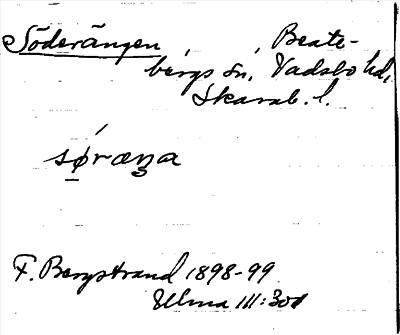 Söderängen, Beate-
bergs sn, Vadsbo hd,
Skarab. l.
sǿ̱ræŋa
F. Bergstrand 1898-99
Ulma III:301